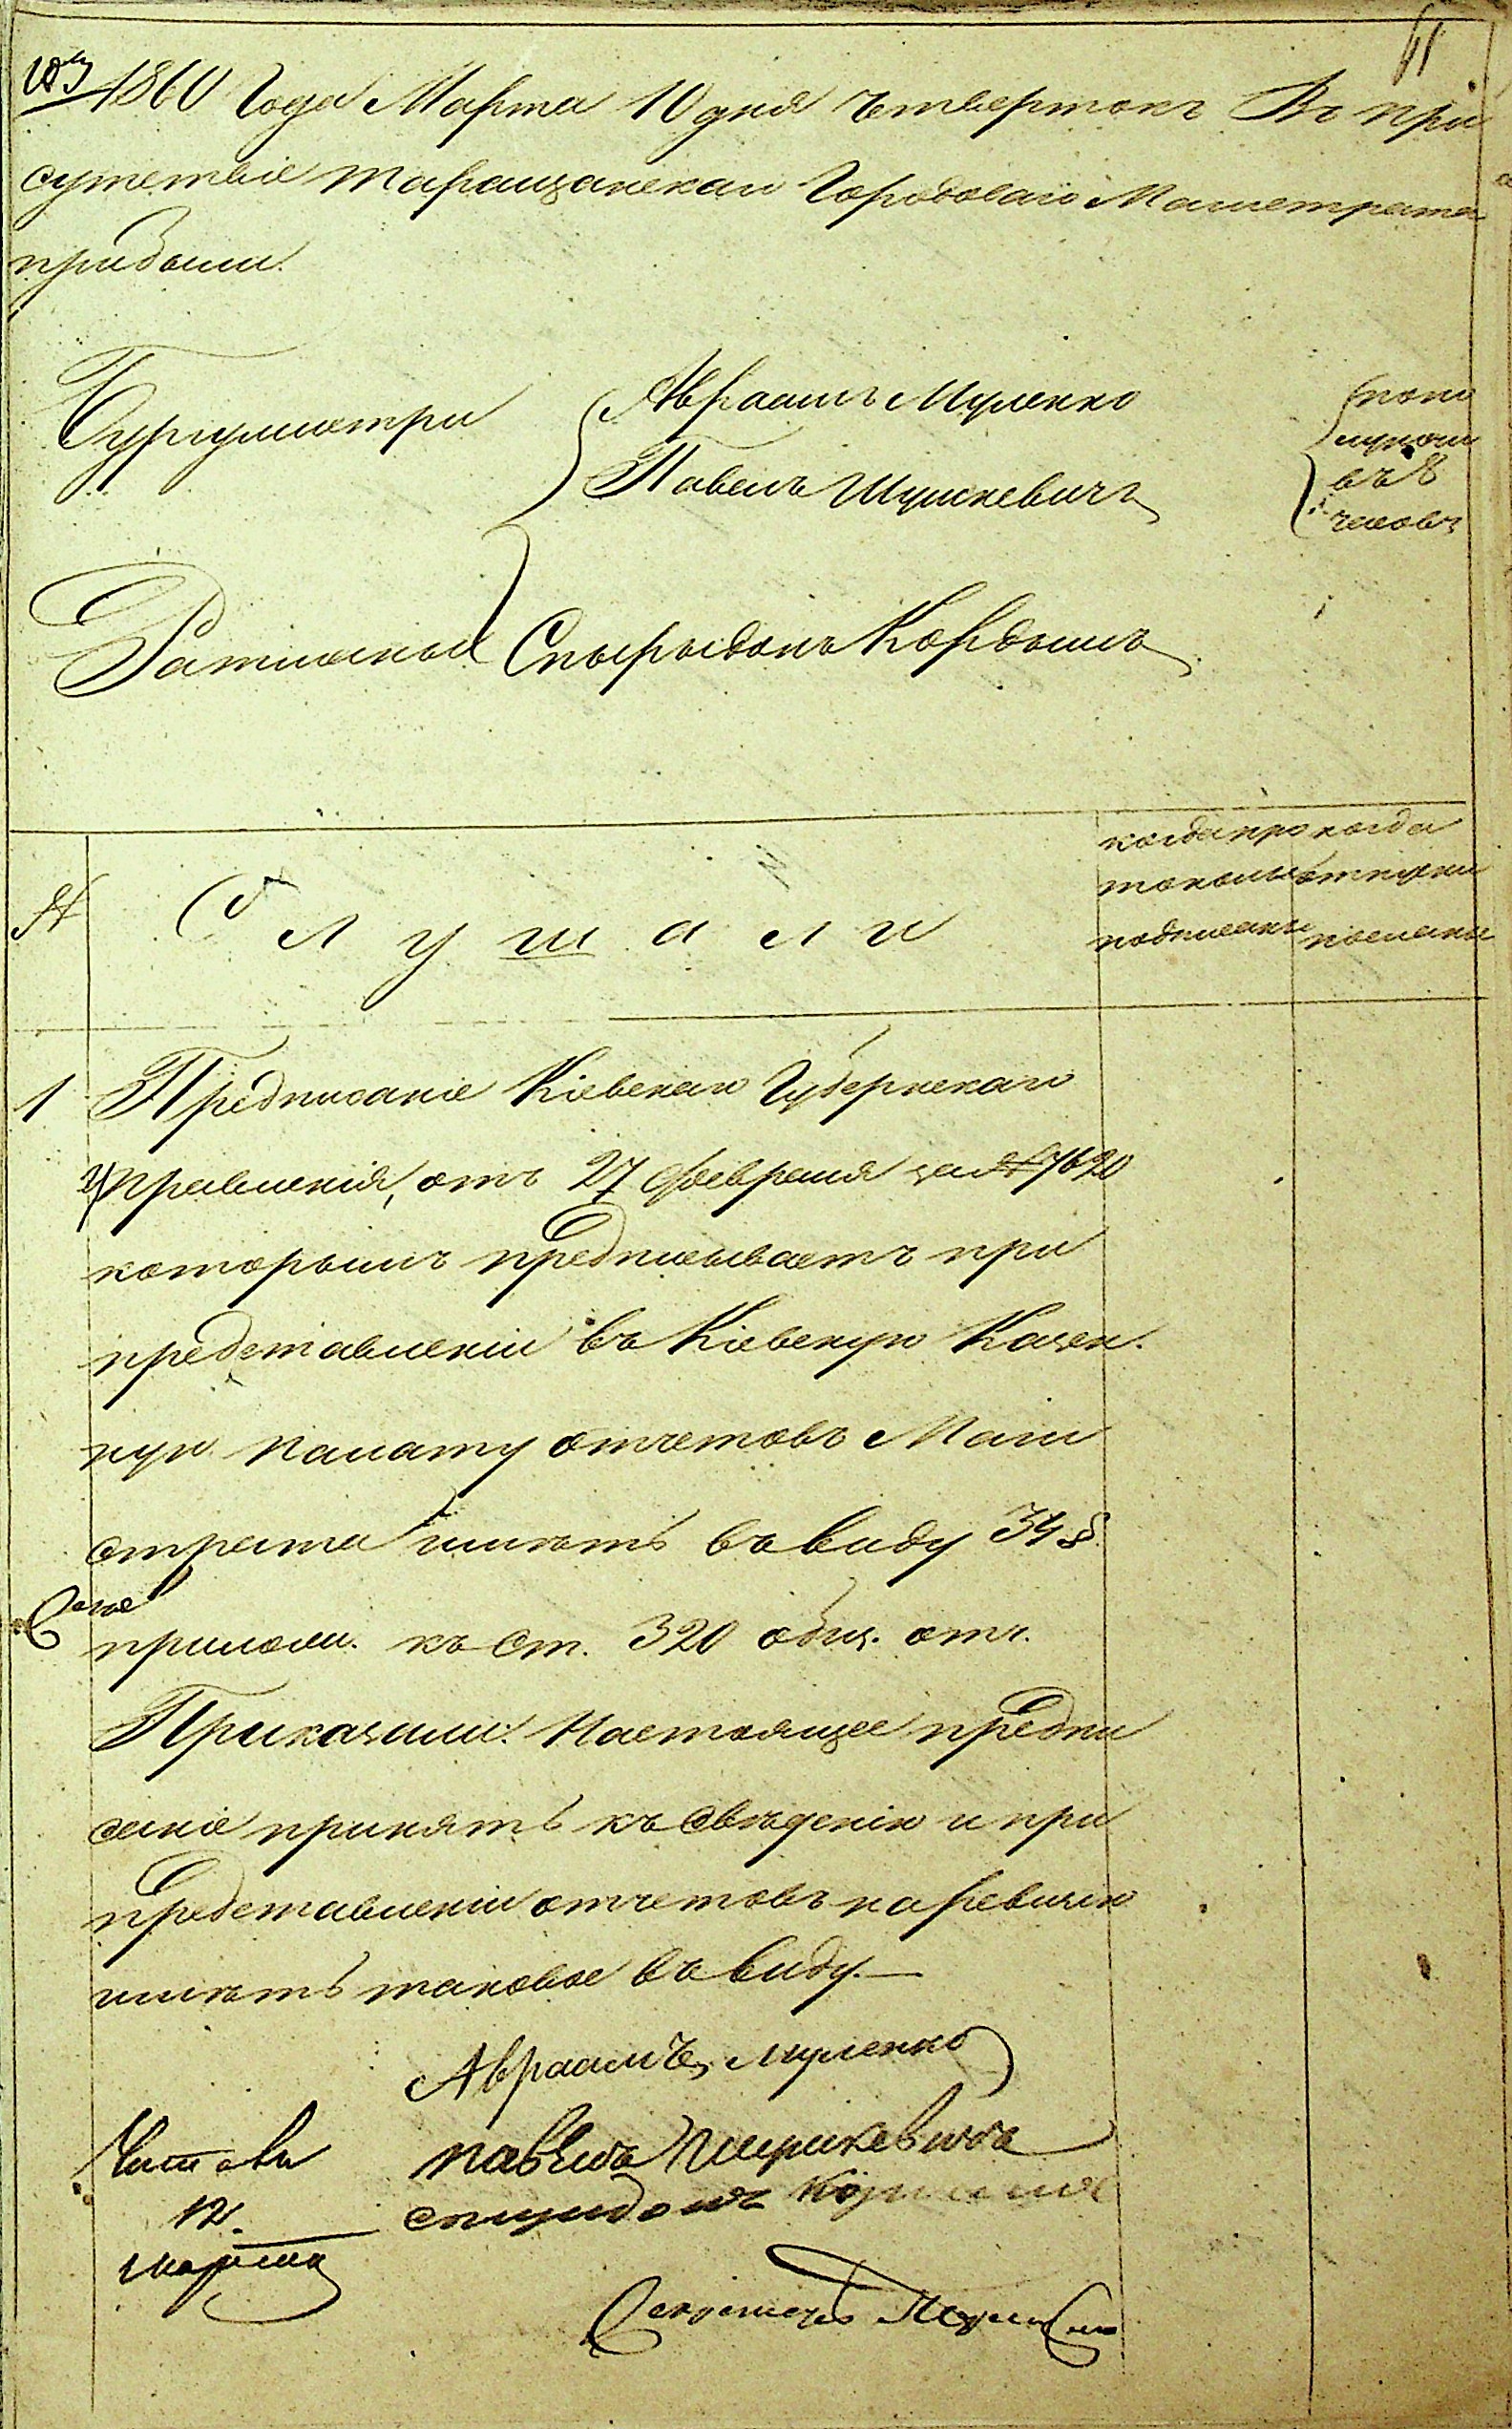 61
1860 Года Марта 10 дня Четвертокъ Въ при
сутствіе Таращанскаго Городоваго Магистрата
прибыли.
Бургумистри Авраамъ Муленко
Павелъ Шушкевичъ
по по
луночи
въ 8
часовъ
Ратманъ Спырыдонъ Кордышъ
№ Слушали
когда про когда
токолы отпуски
подписаны посланы
1 Предписаніе Кіевскаго Губернскаго
Правленія, отъ 27 Февраля за № 7620
которымъ предписываетъ при
представленіи въ Кіевскую Казен.
ную Палату отчетовъ Маги
страта имѣть въ виду 34 §
прилож. къ ст. 320 общ. отч.
Приказали: Настоящее предпи
саніе принять къ свѣденію и при
представленіи отчетовъ на Ревизію
имѣть таковое въ виду.—
Авраамъ Муленко
Читалъ Павелъ Шушкевичъ
12. Спиридонъ
марта
Секретарь